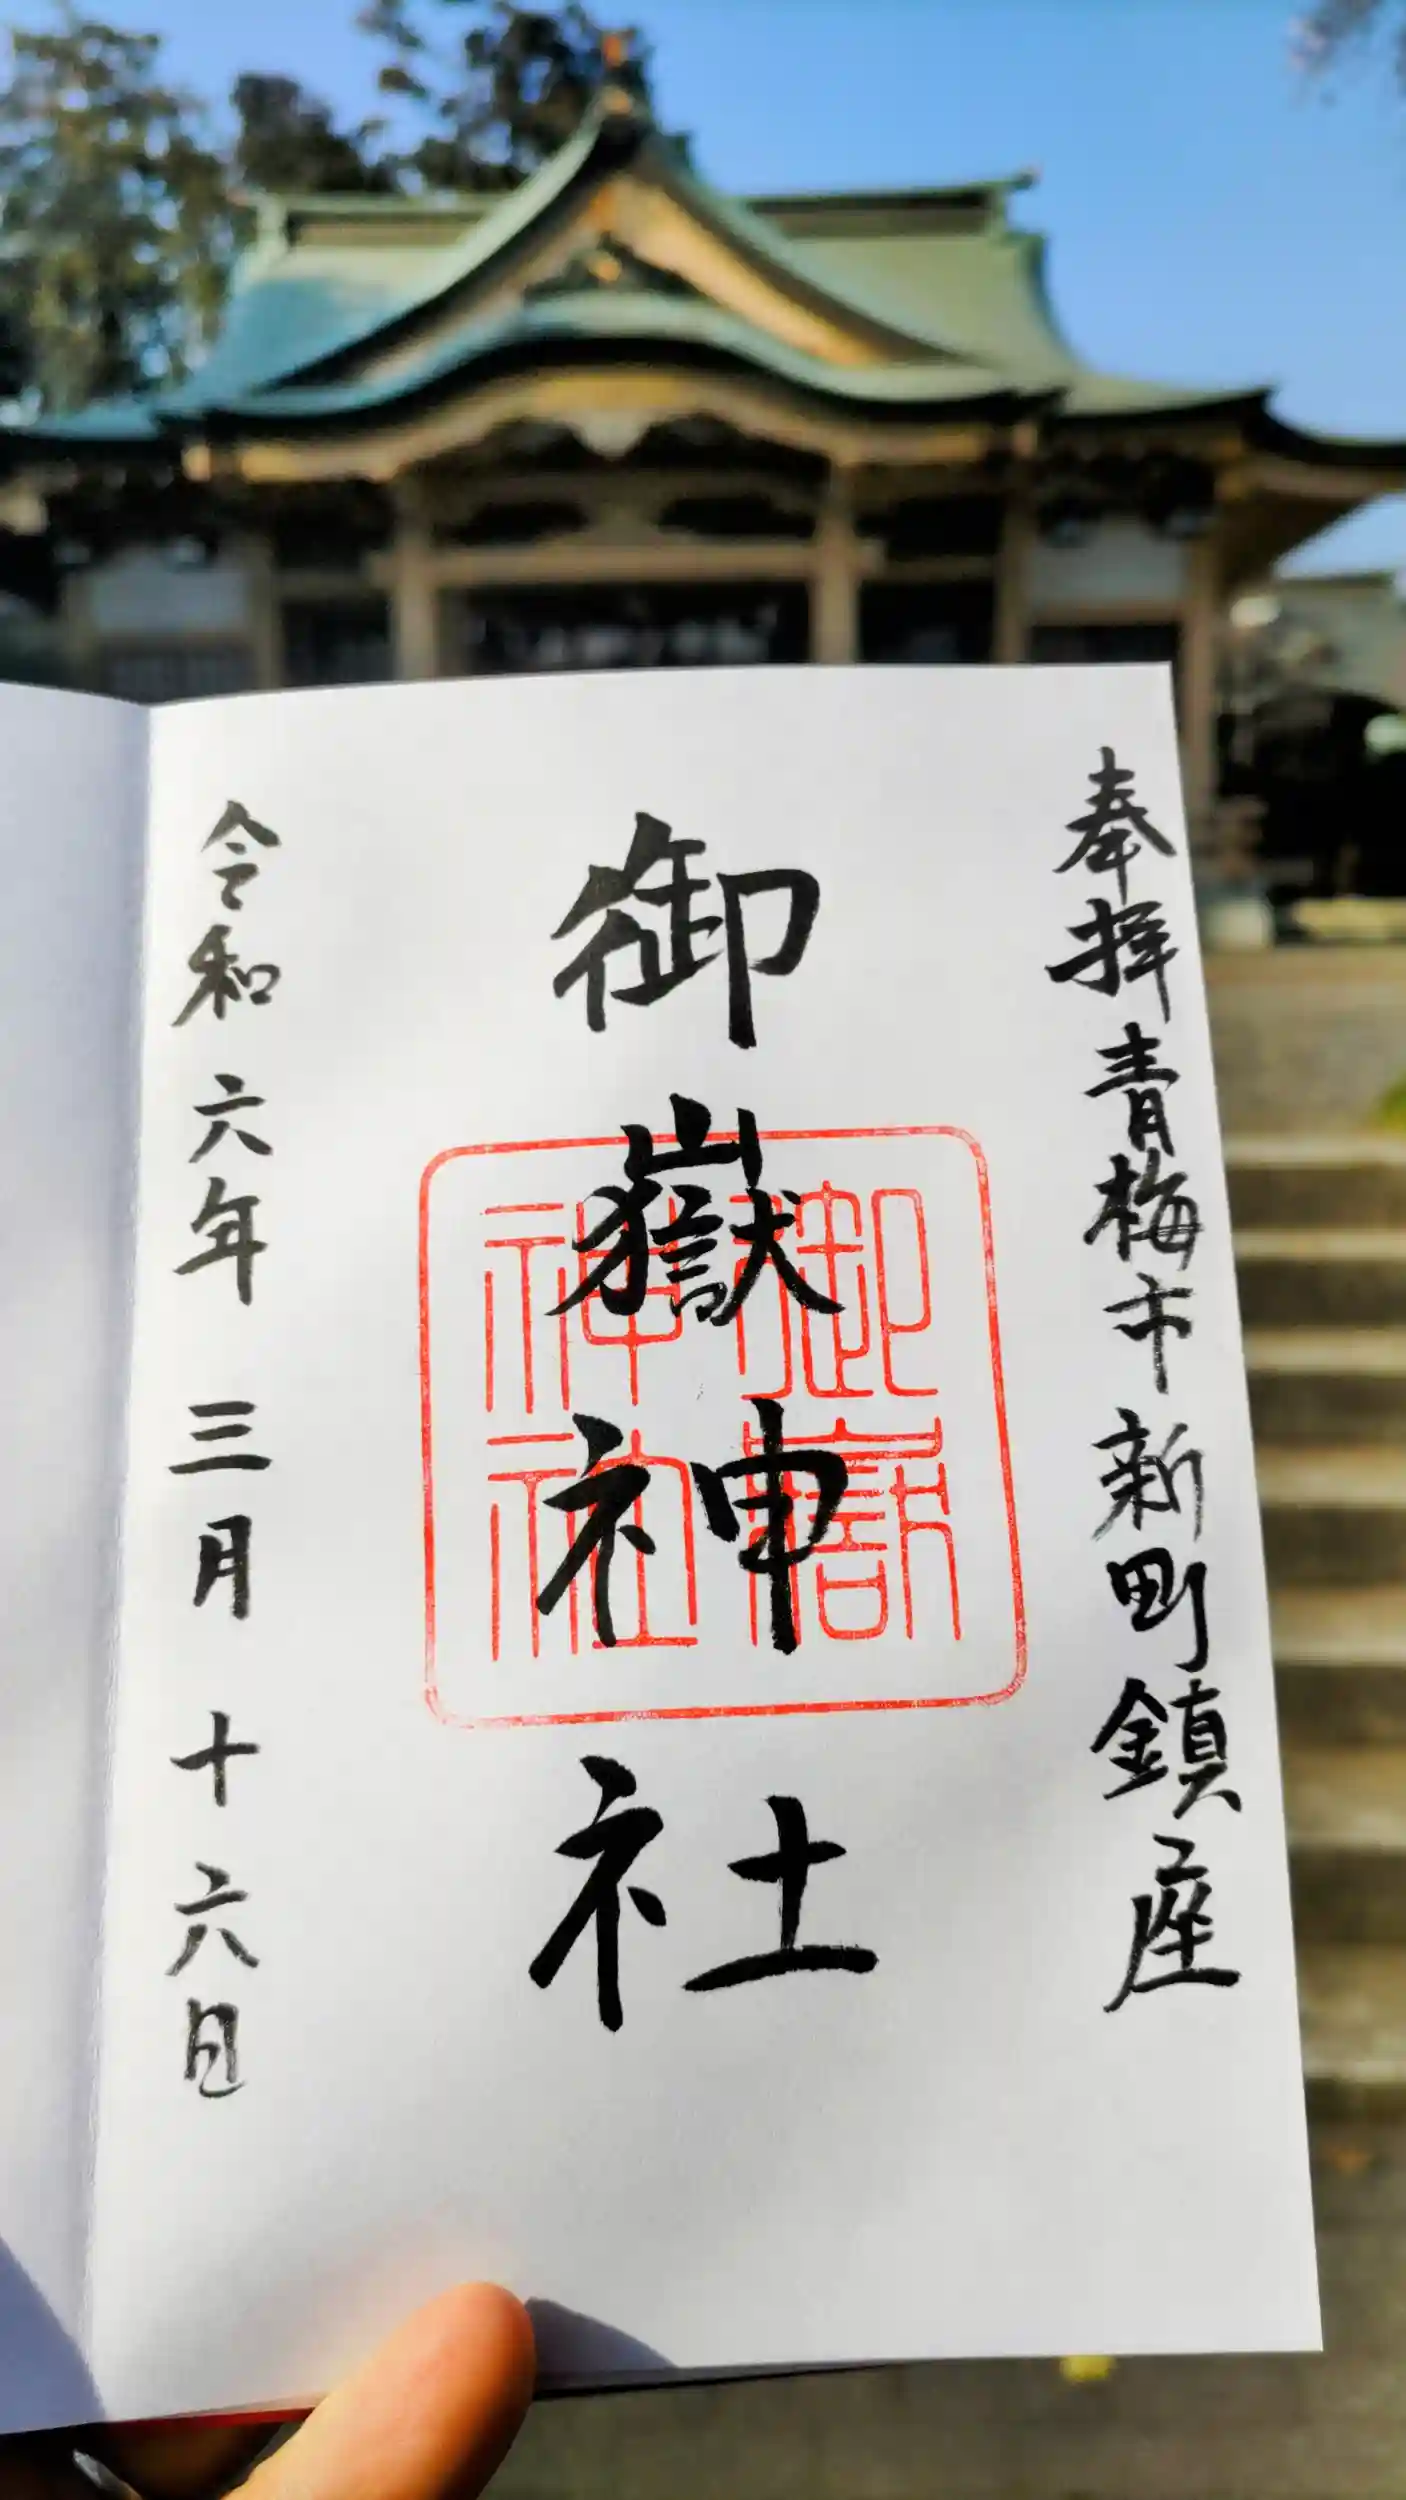 奉拝 青梅市新町鎮座
御嶽神社
御嶽
神社
令和六年三月十六日